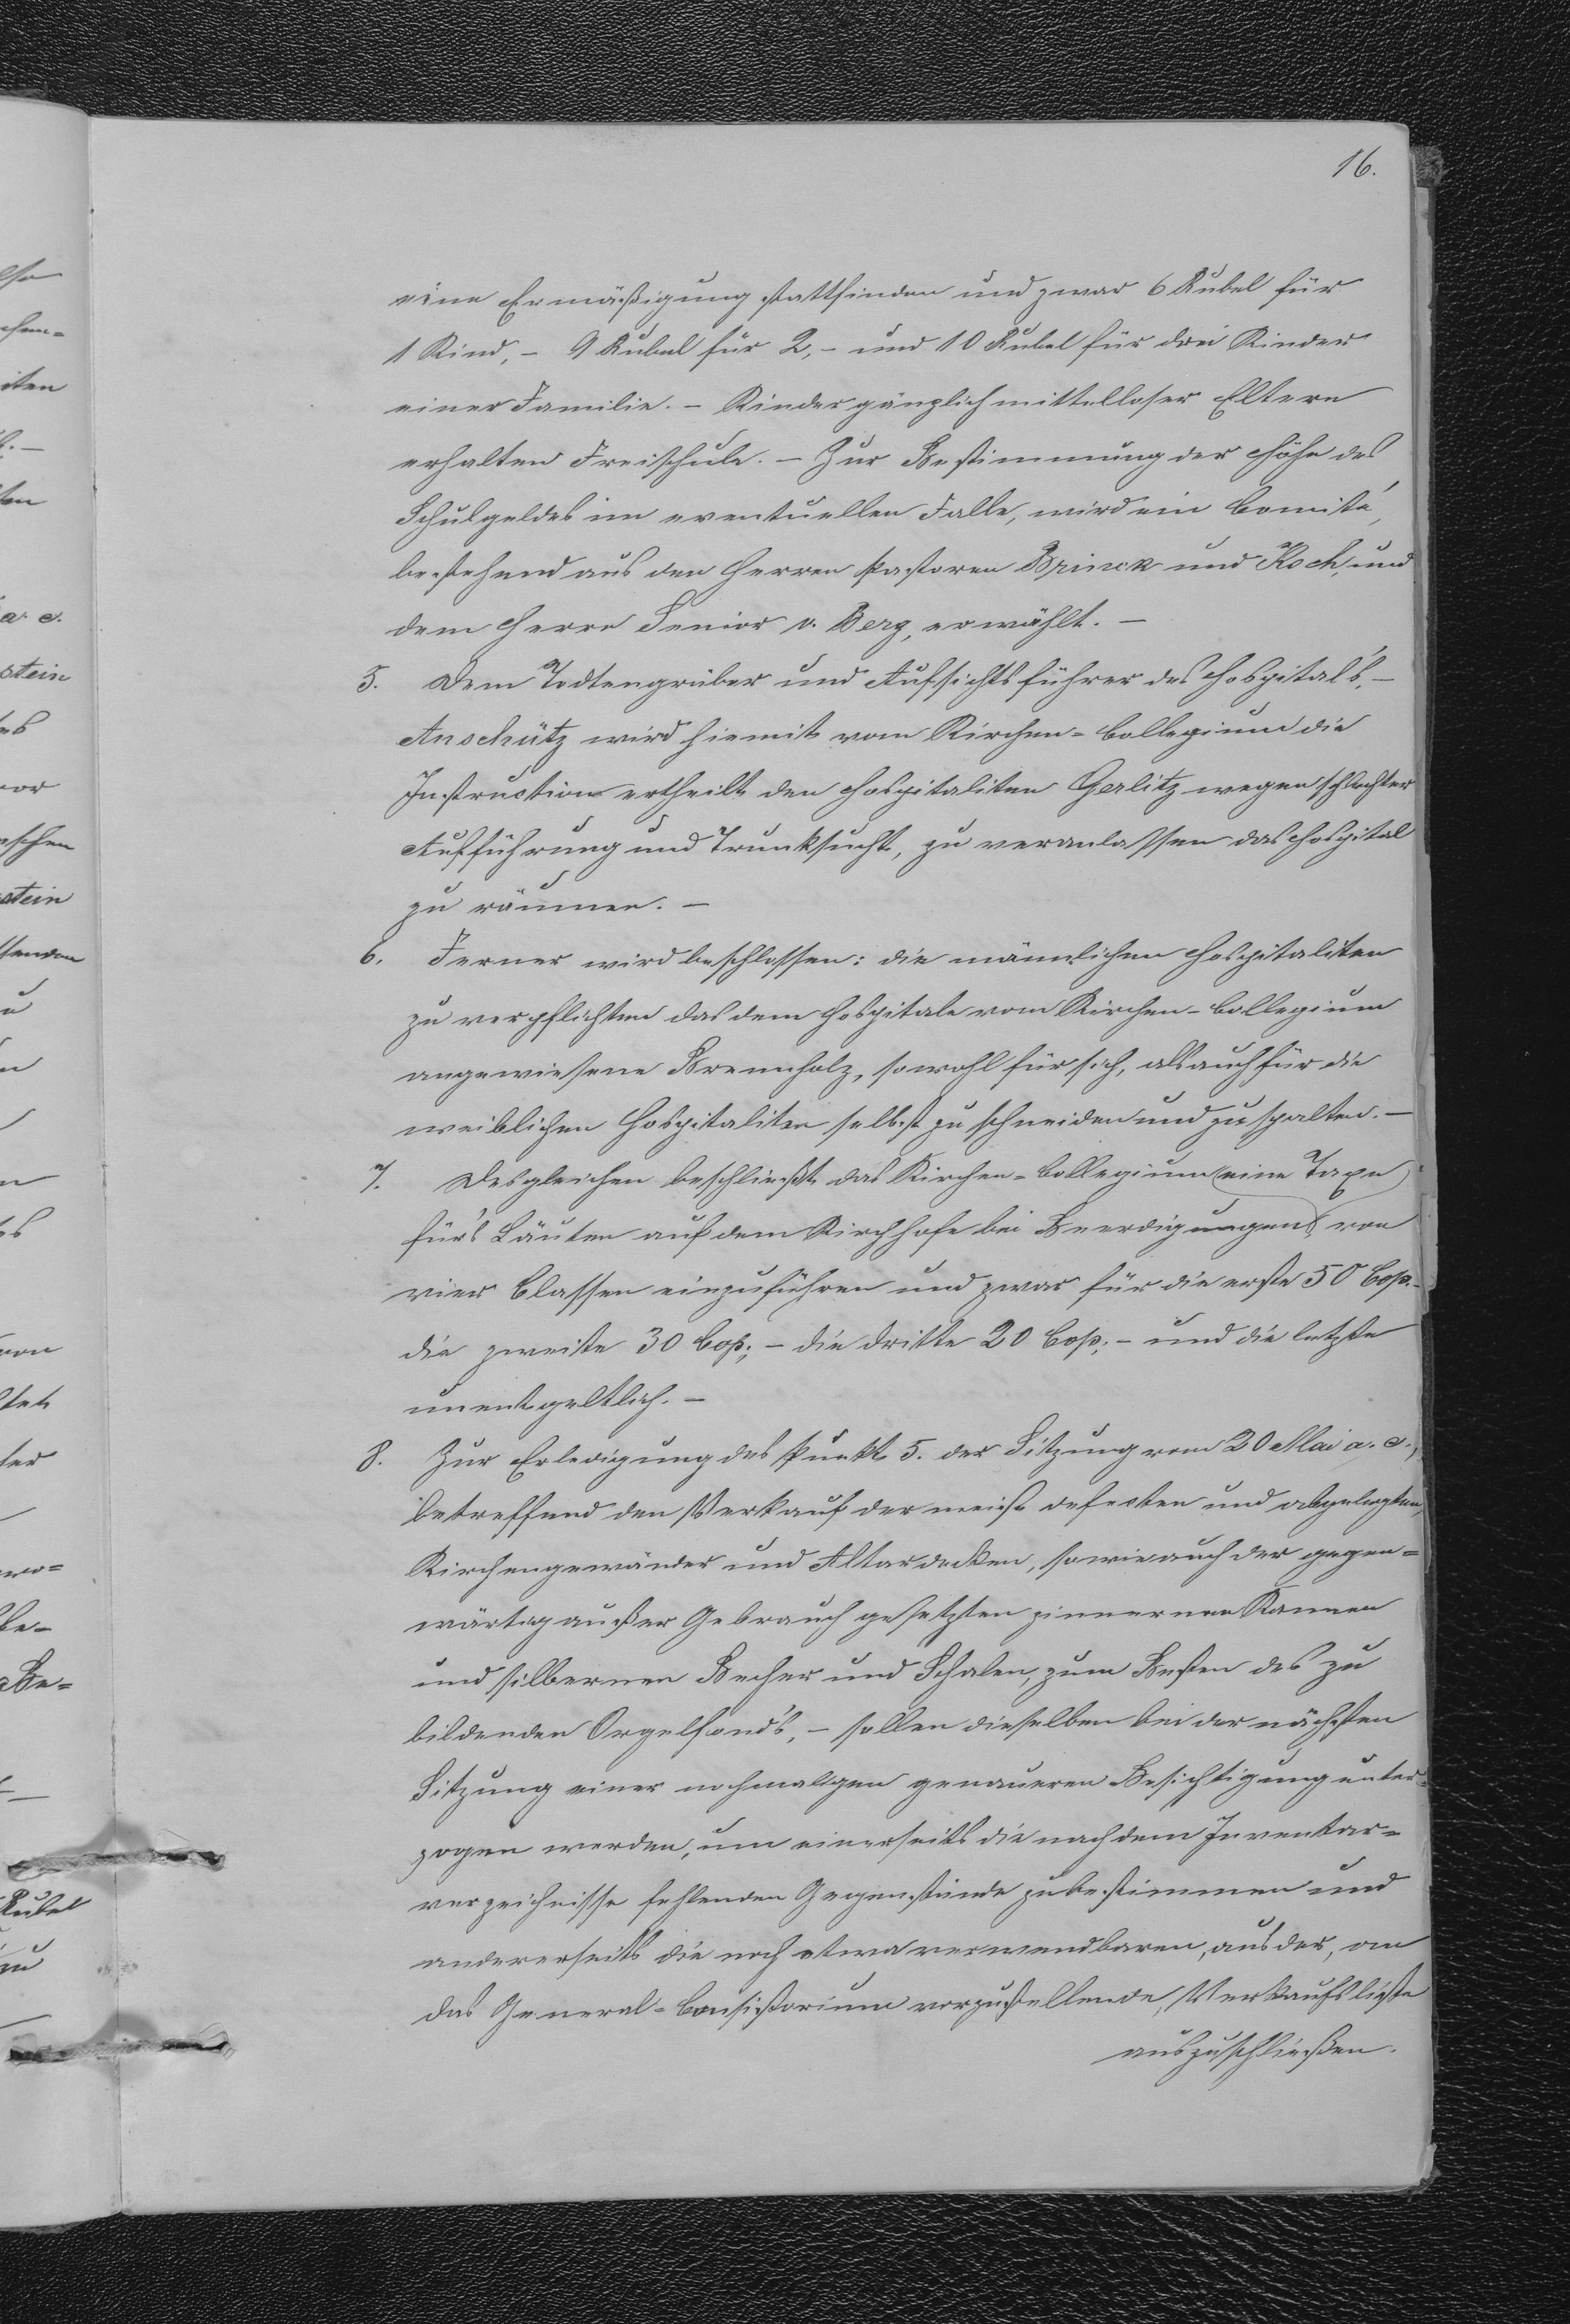 16.
eine Ermäßigung stattfinden und zwar 6 Rubel für
1 Kind, – 9 Rubel für 2, – und 10 Rubel für drei Kinder
einer Familie. – Kinder gänzlich mittelloser Eltern
erhalten Freischule. – Zur Bestimmung der Höhe des
Schulgeldes im eventuellen Falle, wird ein Comité,
bestehend aus den Herren Pastoren Brinck und Koch, und
dem Herrn Senior v. Berg, erwählt. –
5. Dem Todtengräber und Aufsichtsführer des Hospital's, –
Anschütz wird hiemit vom Kirchen-Collegium die
Instruction ertheilt den Hospitaliten Gerlitz wegen schlechter
Aufführung und Trunksucht, zu veranlassen das Hospital
zu räumen. –
6. Ferner wird beschlossen: die männlichen Hospitaliten
zu verpflichten das dem Hospitale vom Kirchen-Collegium
angewiesene Brennholz, sowohl für sich, als auch für die
weiblichen Hospitaliten selbst zu schneiden und zu spalten. –
7. Desgleichen beschließt das Kirchen-Collegium eine Taxe
für's Läuten auf dem Kirchhofe bei Beerdigungen von
vier Classen einzuführen und zwar für die erste 50 Cop. –
die zweite 30 Cop; – die dritte 20 Cop; – und die letzte
unentgeltlich. –
8. Zur Erledigung des Punkt 5. der Sitzung vom 20 Mai a. c.,
betreffend den Verkauf der meist defecten und abgelegten,
Kirchengewänder und Altardecken, sowie auch der gegen=
wärtig außer Gebrauch gesetzten zinnernen Kannen
und silbernen Becher und Schalen, zum Besten des zu
bildenden Orgelfond's, – sollen dieselben bei der nächsten
Sitzung einer nochmaligen genaueren Besichtigung unter=
zogen werden, um einerseits die nach dem Inventar=
verzeichnisse fehlenden Gegenstände zu bestimmen und
andererseits die noch etwa verwendbaren, aus der, an
das General-Consistorium vorzustellende, Verkaufsliste
auszuschließen.